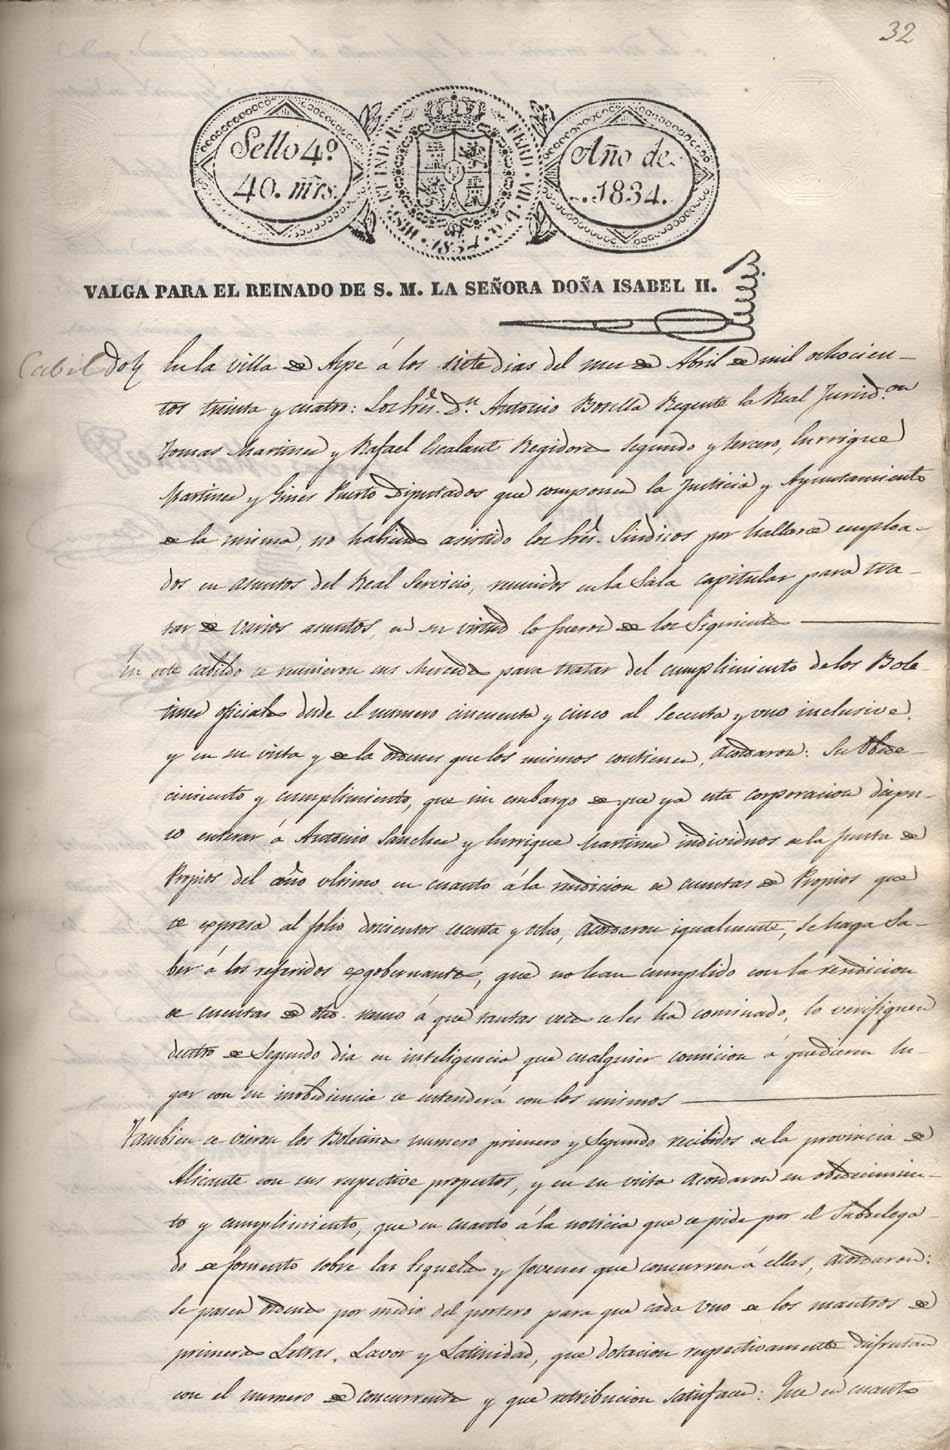 32
Sello 4º
40. mrs.
HISP. ET IND. R. FERD. VII. D. G.
1834
Año de
1834.
VALGA PARA EL REINADO DE S. M. LA SEÑORA DOÑA ISABEL II.
Cabildo
En la villa de Aspe á los siete dias del mes de Abril de mil ochocien-
tos treinta y cuatro: Los Sres. Dn. Antonio Botella Regente la Real Jurisd.on
Tomas Martinez y Rafael Escalant Regidores Segundo y tercero, Enrrique
Martinez y Gines Puerto Diputados que componen la Justicia y Ayuntamiento
de la misma, no habiendo asistido los Sres. Sindicos por hallarse emplea-
dos en asuntos del Real Servicio, reunidos en la Sala capitular para tra-
tar de varios asuntos, en su virtud lo fueron de los Siguientes
En este cabildo se reunieron sus Mercedes para tratar del cumplimiento de los Bole-
tines oficiales desde el numero cincuenta y cinco al secenta y uno inclusive,
y en su vista y de la ordenes que los mismos contienen, acordaron: Su Obede-
cimiento y cumplimiento, que sin embargo de que ya esta corporacion dispu-
so enterar á Antonio Sanchez y Enrrique Martinez individuos de la Junta de
Propios del año ultimo en cuanto á la rendicion de cuentas de Propios que
se expresa al folio doscientos secenta y ocho, acordaron igualmente, se haga sa-
ber á los referidos exgobernantes, que no han cumplido con la rendicion
de cuentas de dho. ramo á que tantas veces se les há cominado, lo verifiquen
dentro de Segundo dia en inteligencia que cualquier comicion á que dieren lu-
gar con su inobediencia se entenderá con los mismos
Tambien se vieron los Boletines numero primero y Segundo recibidos de la provincia de
Alicante con sus respective propectos, y en su vista acordaron su obedecimien-
to y cumplimiento, que en cuanto á la noticia que se pide por el Subdelega-
do de fomento sobre las Esquelas y Jovenes que concurren á ellas, acordaron:
Se pasen ordenes por medio del portero para que cada uno de los maestros de
primeras Letras, Lavor y Latinidad, que dotacion respectivamente disfrutan
con el numero de concurrentes y que retribucion satisfacen: Que en cuanto